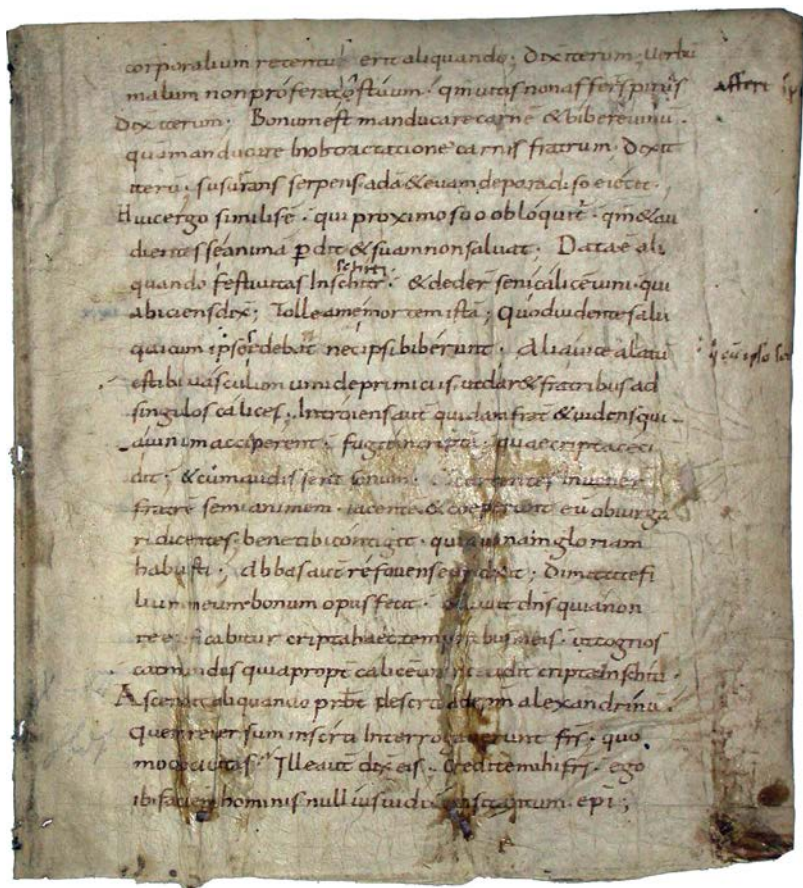 corporalium retentus erit aliquando; Dix iterum; Uerbū
malum non proferat os tuum. qm uitis non affert spinas
Dix iterum; Bonum est manducare carnē & bibere uinū.
quā manducare in obtractatione carnis fratrum; Dixit
iterū; susurrans serpens adā & euam de paradiso eiecit.
Huic ergo similis ē. qui proximo suo obloquit. qm & au
dientes se anima pdit & suam non saluat; Data ē ali
quando festiuitas In schiti. & deder seni calice uini. qui
abiciens dix; Tolle a me mortem istā; Quod uidentes alii
qui cum ipso edebāt nec ipsi biberunt. Alia uice alatū
est ibi uasculum uini de primiciis. ut dar& fratribus ad
singulos calices; Introiens aut quidam frat & uidens qui
uinum acciperent. fugit in criptā. quae cripta ceci
dit; & cum audissent sonum. currentes inuener
fratrē semianimem. iacentē & coeperunt eū obiurga
ri dicentes; bene tibi contigit. quia uanam gloriam
habuisti; Abbas aut refouens eum dixit; Dimittite fi
lium meum bonum opus fecit. uiuit dns quia non
reedificabitur cripta haec temporibus meis. ut cognos
cat mundus quia propt calicē uini cecidit cripta In schiti.
Ascendit aliquando prbt de scithi ad epm alexandrinū.
quem reuersum in scithi Interrogauerunt frs. quo
modo ciuitas. Ille aut dix eis. Credite mihi frs. ego
ibi faciem hominis nullius uidi nisi tantum epi;
affert